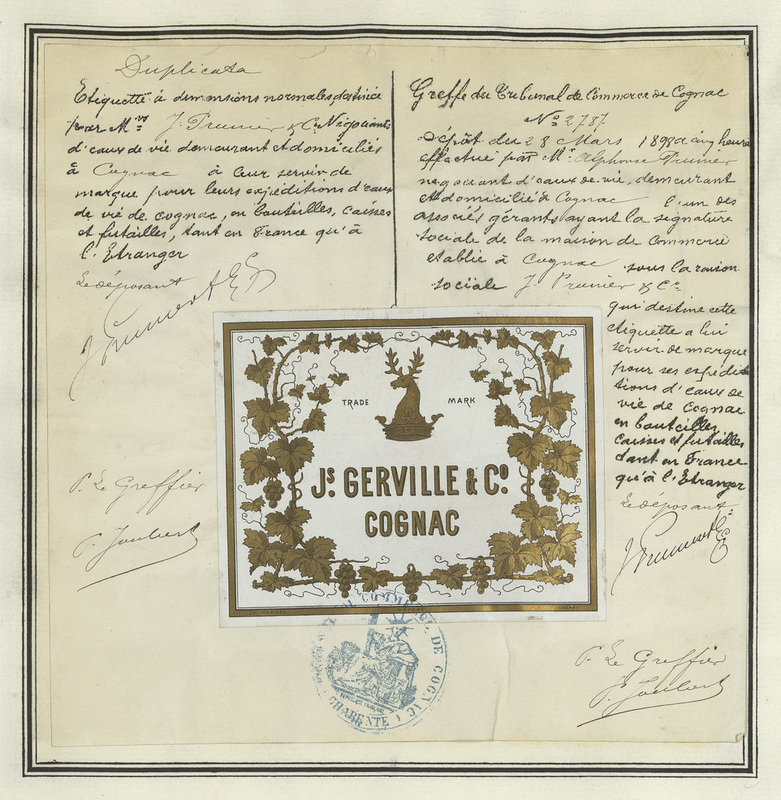 Duplicata
Etiquette à dimensions normales destinée
pour Mrs J. Prunier & Cie Négociants
d'eaux de vie demeurant et domiciliés
à Cognac à leur servir de
marque pour leurs expéditions d'eaux
de vie de cognac, en bouteilles, caisses
et futailles, tant en France qu'à
l'Etranger
Le déposant
J Prunier & Co
P. Le Greffier
P. Joubert
Greffe du Tribunal de Commerce de Cognac
No 2787.
Dépôt du 28 Mars 189 heures
effectué par Mr. Alphonse Prunier
négociant d'eaux de vie, demeurant
et domicilié à Cognac l'un des
associés gérants ayant la signature
sociale de la maison de Commerce
établie à Cognac sous la raison
sociale J. Prunier & Co
qui destine cette
étiquette a lui
servir de marque
pour ses expédi
tions d'eaux de
vie de Cognac
en bouteilles
caisses et futailles
tant en France
qu'à l'Etranger
Le déposant
J Prunier & Co
P. Le Greffier
P. Joubert
TRADE MARK
Js. GERVILLE & Co.
COGNAC
DE COMMERCE DE COGNAC
CHARENTE